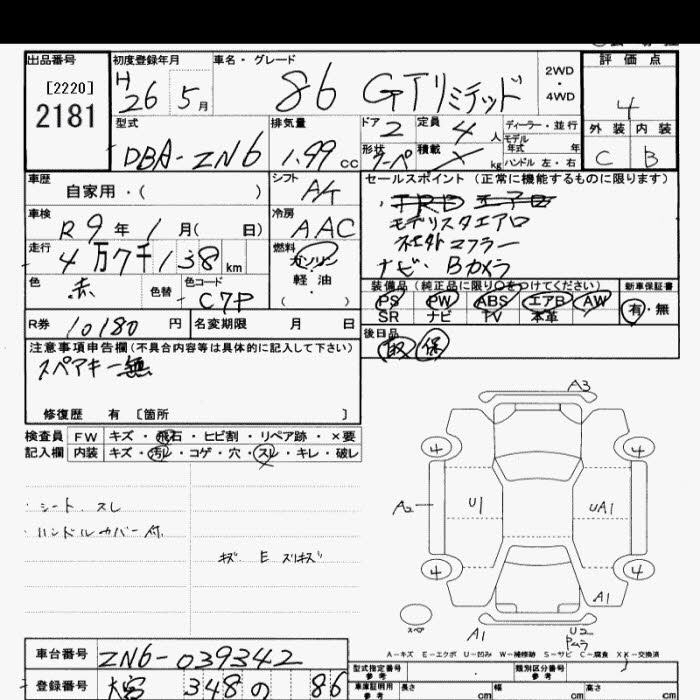 出品番号 初度登録年月 車名・グレード 評価点
[2220]
2181
H 26 5月
86 GTリミテッド
2WD
・
4WD
4
型式 排気量 ドア 2 定員 4人 ディーラー・並行 外装 内装
DBA-ZN6 1.99cc
モデル年式 年
形状 クーペ 積載 kg ハンドル 左・右
C B
車歴 シフト セールスポイント (正常に機能するものに限ります)
自家用・( ) A/t
車検 冷房
R9年1月( 日) AAC
モデリスタエアロ
社外マフラー
ナビ Bカメラ
走行 燃料
4万7千138km
ガソリン
軽油
・( )
色 色替 色コード
赤 C7P
装備品(純正品に限り○をつけてください) 新車保証書
PS PW ABS エアB AW
SR ナビ TV 本革
有・無
R券 10180円 名変期限 月 日
後日品
取 保
注意事項申告欄(不具合内容等は具体的に記入して下さい)
スペアキー無
修復歴 有 [箇所 ]
検査員 FW キズ・飛石・ヒビ割・リペア跡・×要
記入欄 内装 キズ・汚レ・コゲ・穴・スレ・キレ・破レ
・シート、スレ
・ハンドルカバー付
キズ E スリキズ
A3
4 4
A2 U1 UA1
4 4
A1
スペア
A1 U2
A-キズ E-エクボ U-凹み W-補修跡 S-サビ C-腐食 XX-交換済
車台番号 ZN6-039342
登録番号 大宮 348 の 86
型式指定番号 参考 類別区分番号 参考
車庫証明用 参考 長さ cm 幅 cm 高さ cm